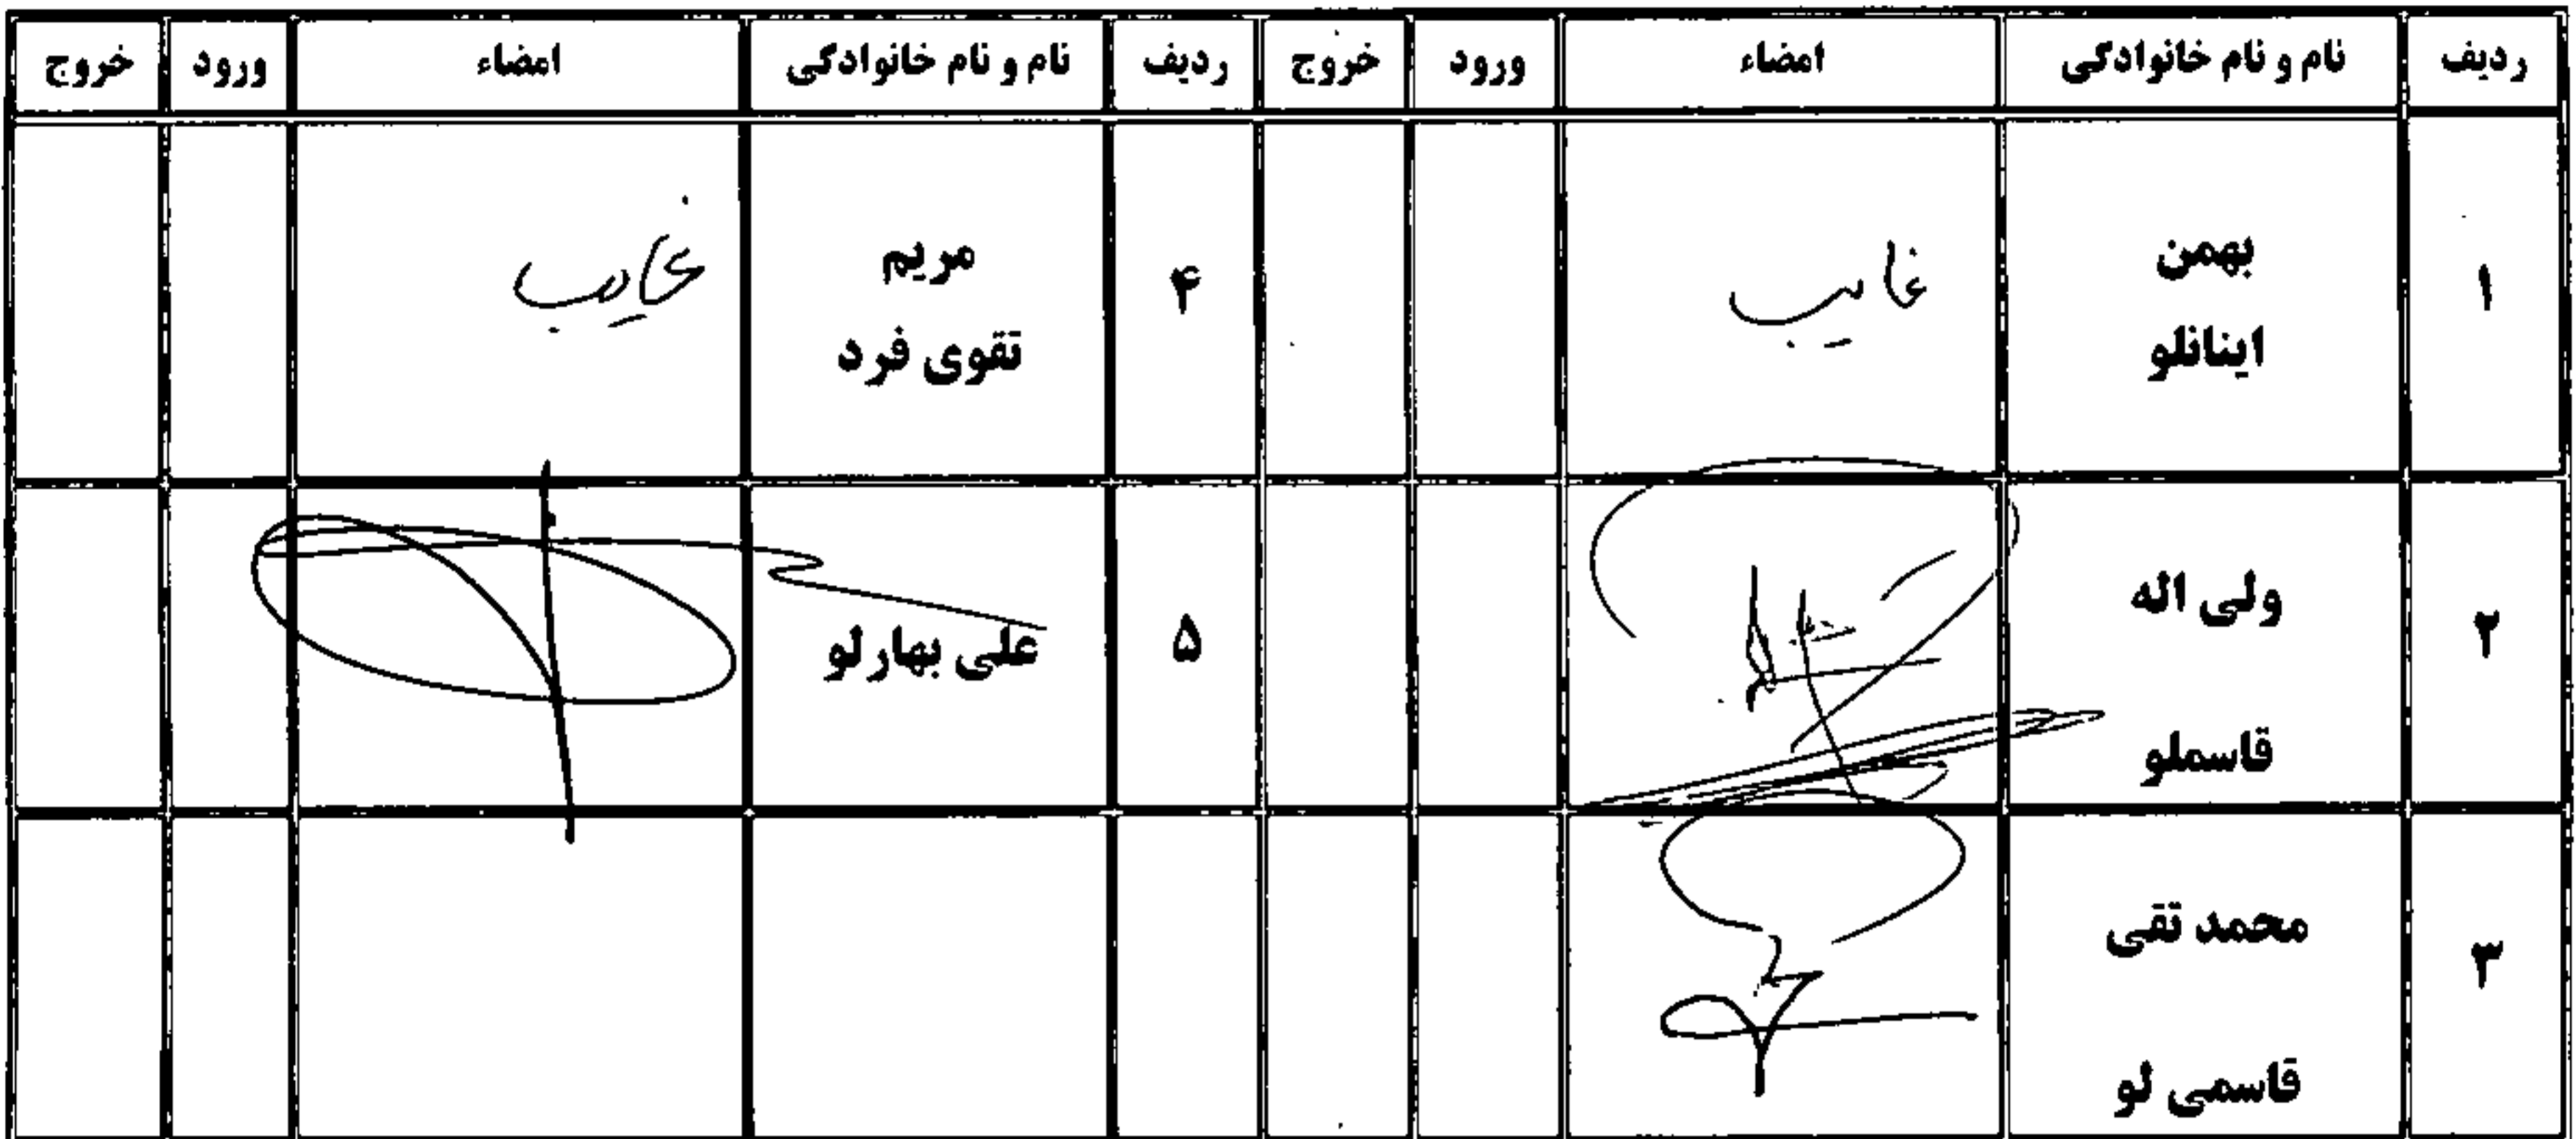 ردیف نام و نام خانوادگی امضاء ورود خروج ردیف نام و نام خانوادگی امضاء ورود خروج
۱ بهمن اینانلو غایب ۴ مریم تقوی فرد غایب
۲ ولی اله قاسملو ۵ علی بهارلو
۳ محمد تقی قاسمی لو